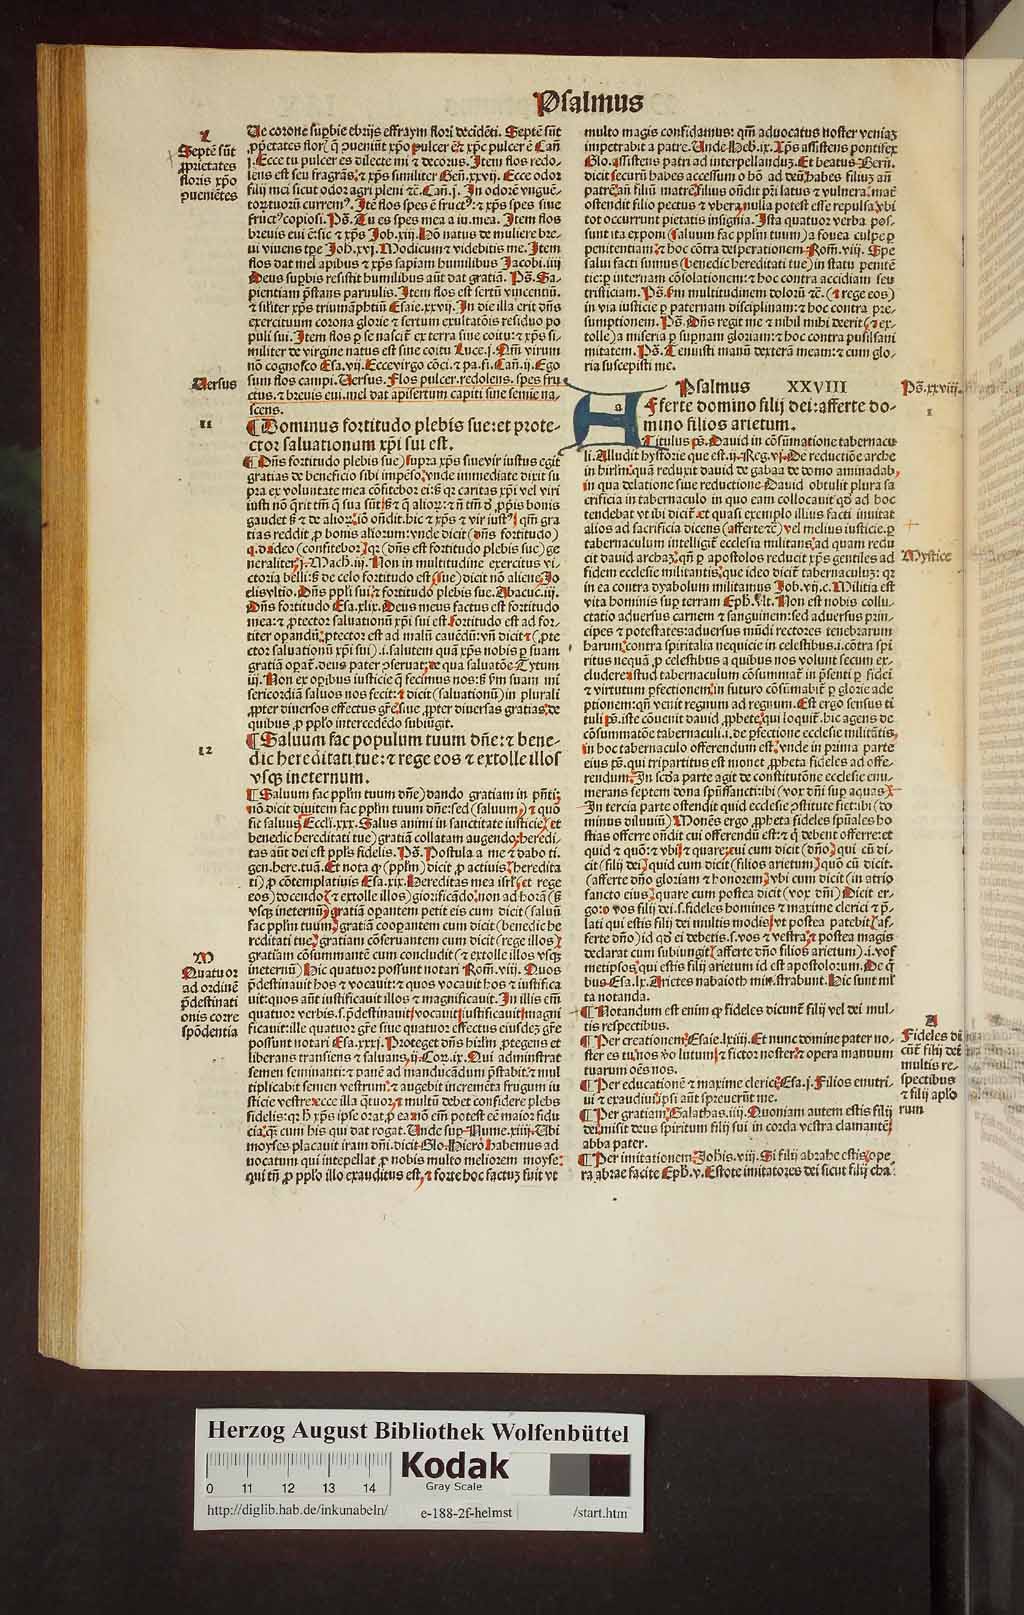 Psalmus
L
Septē sūt
ꝓprietates
floris xp̄o
ꝯueniētes
Ue corone sup̱bie ebrijs effraym flori decidēti. Septē sūt
ꝓp̄etates flor̄ q̄ ꝯueniūt xp̄o pulcer ē: ⁊ xp̄c pulcer ē Cāñ
j. Ecce tu pulcer es dilecte mi ⁊ decorus. Item flos redo-
lens est seu fragrās: ⁊ xp̄s similiter Geñ. xxvij. Ecce odor
filij mei sicut odor agri pleni ⁊c̄. Cāñ. j. In odorē vnguē-
tor̄ tuor̄ū currem⁹. Itē flos spes ē fruct⁹: ⁊ xp̄s spes siue
fruct⁹ copiosi. Ps̄. Tu es spes mea a iu. mea. Item flos
breuis eui ē: sic ⁊ xp̄s Job. xiij. Hō natus de muliere bre-
ui viuens tp̄e Joh. xvj. Modicum ⁊ videbitis me. Item
flos dat mel apibus ⁊ xp̄s sapiam humilibus Jacobi. iiij
Deus sup̱bis resistit humilibus aūt dat gratiā. Ps̄. Sa-
pientiam p̄stans paruulis. Item flos est sertū vincentiū.
⁊ siliter xp̄s triumāphtiū Esaie. xxvij. In die illa erit dn̄s
exercituum corona glorie ⁊ sertum exultatōis residuo po
puli sui. Item flos p̱ se nascit̄ ex terra sine coitu: ⁊ xp̄s si-
militer de virgine natus est sine coitu Luce. j. Qm̄ virum
nō cognosco Esa. vij. Ecce virgo cōci. ⁊ pa. fi. Cāñ. ij. Ego
Uersus
sum flos campi. Uersus. Flos pulcer. redolens. spes fru
ctus. ⁊ breuis eui. mel dat apisertum capiti sine semie na-
scens.
11
¶ Dominus fortitudo plebis sue: et prote-
ctor saluationum xp̄i sui est.
¶ Dn̄s fortitudo plebis sue) supra xp̄s siue vir iustus egit
gratias de beneficio sibi impēso: vnde immediate dixit su
pra ex voluntate mea cōfitebor ei: s̄ qr caritas xp̄i vel viri
iusti nō q̄rit tm̄ q̄ sua sūt s̄ ⁊ q̄ alior̄: ⁊ n̄ tm̄ d̄ ꝓp̄ijs bonis
gaudet s̄ ⁊ de alior̄: iō oñdit. hic ⁊ xp̄s ⁊ vir iust⁹ qm̄ gra
tias reddit ꝓ bonis alior̄um: vnde dicit (dn̄s fortitudo)
q. d. ideo (confitebor) qr (dn̄s est fortitudo plebis sue) ge
neraliter j. Mach. iij. Non in multitudine exercitus vi-
ctoria belli: s̄ de celo fortitudo est (sue) dicit nō aliene Jo
elis vltio. Dn̄s pp̄li sui: ⁊ fortitudo plebis sue. Abacuc. iij.
Dn̄s fortitudo Esa. xlix. Deus meus factus est fortitudo
mea: ⁊ ꝓtector saluationū xp̄i sui est fortitudo est ad for-
titer opandū: ꝓtector est ad malū cauēdū: vn̄ dicit ⁊ (ꝓte
ctor saluationū xp̄i sui) .i. salutem quā xp̄s nobis p̱ suam
gratiā opat̄. deus pater ꝯseruat: de qua saluatōe Tytum
iij. Non ex op̱ibus iusticie q̄ fecimus nos: s̄ fm̄ suam mi
sericordiā saluos nos fecit: ⁊ dicit (saluationū) in plurali
ꝓpter diuersos effectus gr̄e siue ꝓpter diuersas gratias: de
quibus ꝓ pp̄lo intercedēdo subiūgit.
12
¶ Saluum fac populum tuum dn̄e: ⁊ bene-
dic hereditati tue: ⁊ rege eos ⁊ extolle illos
vsq̄ in eternum.
¶ Saluum fac pp̄lm tuum dn̄e) dando gratiam in pn̄ti:
nō dicit diuitem fac pp̄lm tuum dn̄e: sed (saluum) ⁊ quō
fie saluus Eccli. xxx. Salus animi in sanctitate iusticie) et
benedic hereditati tue) gratiā collatam augendo: heredi-
tas aūt dei est pp̄ls fidelis. Ps̄. Postula a me ⁊ dabo ti.
gen. here. tuā. Et nota q̄ (pp̄lm) dicit ꝓ actiuis: heredita
ti) ꝓ cōtemplatiuis Esa. xix. Hereditas mea isrl̄) et rege
eos) docendo (⁊ extolle illos) glorificādo: non ad horā (s̄
vsq̄ in eternū) gratiā opantem petit eis cum dicit (saluū
fac pp̄lm tuum) gratiā coopantem cum dicit (benedic he
reditati tue) gratiam cōseruantem cum dicit (rege illos)
gratiam cōsummantē cum concludit (⁊ extolle illos vsq̄
M
Quatuor
ad ordinē
p̄destinati
onis corre
spōdentia
ineternū) Hic quatuor possunt notari Rom̄. viij. Quos
p̄destinauit hos ⁊ vocauit: ⁊ quos vocauit hos ⁊ iustifica
uit: quos aūt iustificauit illos ⁊ magnificauit. In illis em̄
quatuor verbis. s. p̄destinauit vocauit iustificauit magni
ficauit: ille quatuor gr̄e siue quatuor effectus eiusdez gr̄e
possunt notari Esa. xxxj. Proteget dn̄s hirl̄m ꝓtegens et
liberans transiens ⁊ saluans ij. Cor. ix. Qui administrat
semen seminanti: ⁊ panē ad manducādum p̄stabit: ⁊ mul
tiplicabit semen vestrum: ⁊ augebit incremēta frugum iu
sticie vestre: ecce illa q̄tuor: ⁊ multū debet confidere plebs
fidelis: qr h̄ xp̄s ipse orat ꝓ ea: nō em̄ potest eē maior fidu
cia: q̄ cum his qui dat rogat. Unde sup̱ Nume. xiiij. Ubi
moyses placauit iram dn̄i. dicit Glo. Hierō habemus ad
uocatum qui intepellat ꝓ nobis multo meliorem moyse:
qui tn̄ ꝓ pp̄lo illo exauditus est. ⁊ forte hoc factuz fuit vt
multo magis confidamus: qm̄ aduocatus noster veniaz
impetrabit a patre. Unde Heb. ix. Xp̄s assistens pontifex
Glo. assistens patri ad interpellanduz. Et beatus Bern̄.
dicit securū habes accessum o hō ad deū: habes filiuz an̄
patrē: an̄ filiū matrē: filius on̄dit pr̄i latus ⁊ vulnera. mat̄
ostendit filio pectus ⁊ vbera: nulla potest esse repulsa: vbi
tot occurrunt pietatis insignia. Ista quatuor verba pos-
sunt ita expon̄i (saluum fac pp̄lm tuum) a fouea culpe p̱
penitentiam: ⁊ hoc cōtra desperationem. Rom̄. viij. Spe
salui facti sumus (benedic hereditati tue) in statu penitē
tie: p̱ internam cōsolationem: ⁊ hoc contra accidiam seu
tristiciam. Ps̄. Fm̄ multitudinem dolorū ⁊c̄. (⁊ rege eos)
in via iusticie p̱ paternam disciplinam: ⁊ hoc contra pre-
sumptionem. Ps̄. Dn̄s regit me ⁊ nihil mihi deerit (⁊ ex-
tolle) a miseria p̱ supnam gloriam: ⁊ hoc contra pusillani
mitatem. Ps̄. Tenuisti manū dexterā meam: ⁊ cum glo-
ria suscepisti me.
Psalmus XXVIII
Ps̄. xxviij.
a
1
Fferte domino filij dei: afferte do-
mino filios arietum.
Titulus ps̄. Dauid in cōsūmatione tabernacu
li. Alludit hystorie que est. ij. Reg. vj. De reductiōe arche
in hirl̄m: quā reduxit dauid de gabaa de domo aminadab,
in qua delatione siue reductione Dauid obtulit plura sa
crificia in tabernaculo in quo eam collocauit: qd̄ ad hoc
tendebat vt ibi dicit̄. et quasi exemplo illius facti inuitat
alios ad sacrificia dicens (afferte ⁊c̄) vel melius iusticie. p̱
tabernaculum intelligit̄ ecclesia militans: ad quam redu
Mystice
cit dauid archaz: qn̄ p̱ apostolos reducit xp̄s gentiles ad
fidem ecclesie militantis: que ideo dicit̄ tabernaculuz: qr
in ea contra dyabolum militamus Job. vij. c. Militia est
vita hominis sup terram Eph. vlt. Non est nobis collu-
ctatio aduersus carnem ⁊ sanguinem: sed aduersus prin-
cipes ⁊ potestates: aduersus mūdi rectores tenebrarum
harum: contra spiritalia nequicie in celestibus. i. cōtra spi
ritus nequā ꝓ celestibus a quibus nos volunt secum ex-
cludere: istud tabernaculum cōsummat̄ in p̄senti p̱ fidei
⁊ virtutum p̱fectionem: in futuro cōsūmabit̄ p̱ glorie ade
ptionem: qn̄ venit regnum ad regnum. Est ergo sensus ti
tuli ps̄. iste cōuenit dauid ꝓphete: qui loquit̄. hic agens de
cōsummatōe tabernaculi. i. de p̱fectione ecclesie militātis,
in hoc tabernaculo offerendum est: vnde in prima parte
eius ps̄. qui tripartitus est monet ꝓpheta fideles ad offe-
rendum. In scd̄a parte agit de constitutōne ecclesie enu-
merans septem dona spūssancti: ibi (vox dn̄i sup aquas)
In tercia parte ostendit quid ecclesie ꝯstitute fiet: ibi (do
minus diluuiū) Monēs ergo ꝓpheta fideles spūales ho
stias offerre on̄dit cui offerendū est: ⁊ q̄ debent offerre: et
quid ⁊ quō: ⁊ vbi: ⁊ quare: cui cum dicit (dn̄o) qui cū di-
cit (filij dei) quid cum dicit (filios arietum) quō cū dicit.
(afferte dn̄o gloriam ⁊ honorem) vbi cum dicit (in atrio
sancto eius) quare cum postea dicit (vox dn̄i) Dicit er-
go: o vos filij dei. s. fideles homines ⁊ maxime clerici ⁊ p̄-
lati qui estis filij dei multis modis: vt postea patebit (af-
ferte dn̄o) id qd̄ ei debetis. s. vos ⁊ vestra: ⁊ postea magis
declarat cum subiungit (afferte dn̄o filios arietum) .i. vos
metipsos: qui estis filij arietum id est apostolorum. De q̄
bus Esa. lx. Arietes nabaioth mistrabunt. Hic sunt ml̄
ta notanda.
¶ Notandum est enim q̄ fideles dicunt̄ filij vel dei mul-
tis respectibus.
A
Fideles di
cūt̄ filij dei
multis re-
spectibus
⁊ filij aplo
rum
¶ Per creationem: Esaie. lxiiij. Et nunc domine pater no-
ster es tu: nos vo lutum: ⁊ fictor noster: ⁊ opera manuum
tuarum oēs nos.
¶ Per educationē ⁊ maxime clerice: Esa. j. Filios enutri-
ui ⁊ exaudiui: ipsi aūt spreuerūt me.
¶ Per gratiam: Galathas. iiij. Quoniam autem estis filij
dei misit deus spiritum filij sui in corda vestra clamantē:
abba pater.
¶ Per imitationem: Johis. viij. Si filij abrahe estis: ope
ra abrae facite Eph. v. Estote imitatores dei sicut filij cha
Herzog August Bibliothek Wolfenbüttel
0 11 12 13 14
Kodak
Gray Scale
http://diglib.hab.de/inkunabeln/ e-188-2f-helmst /start.htm